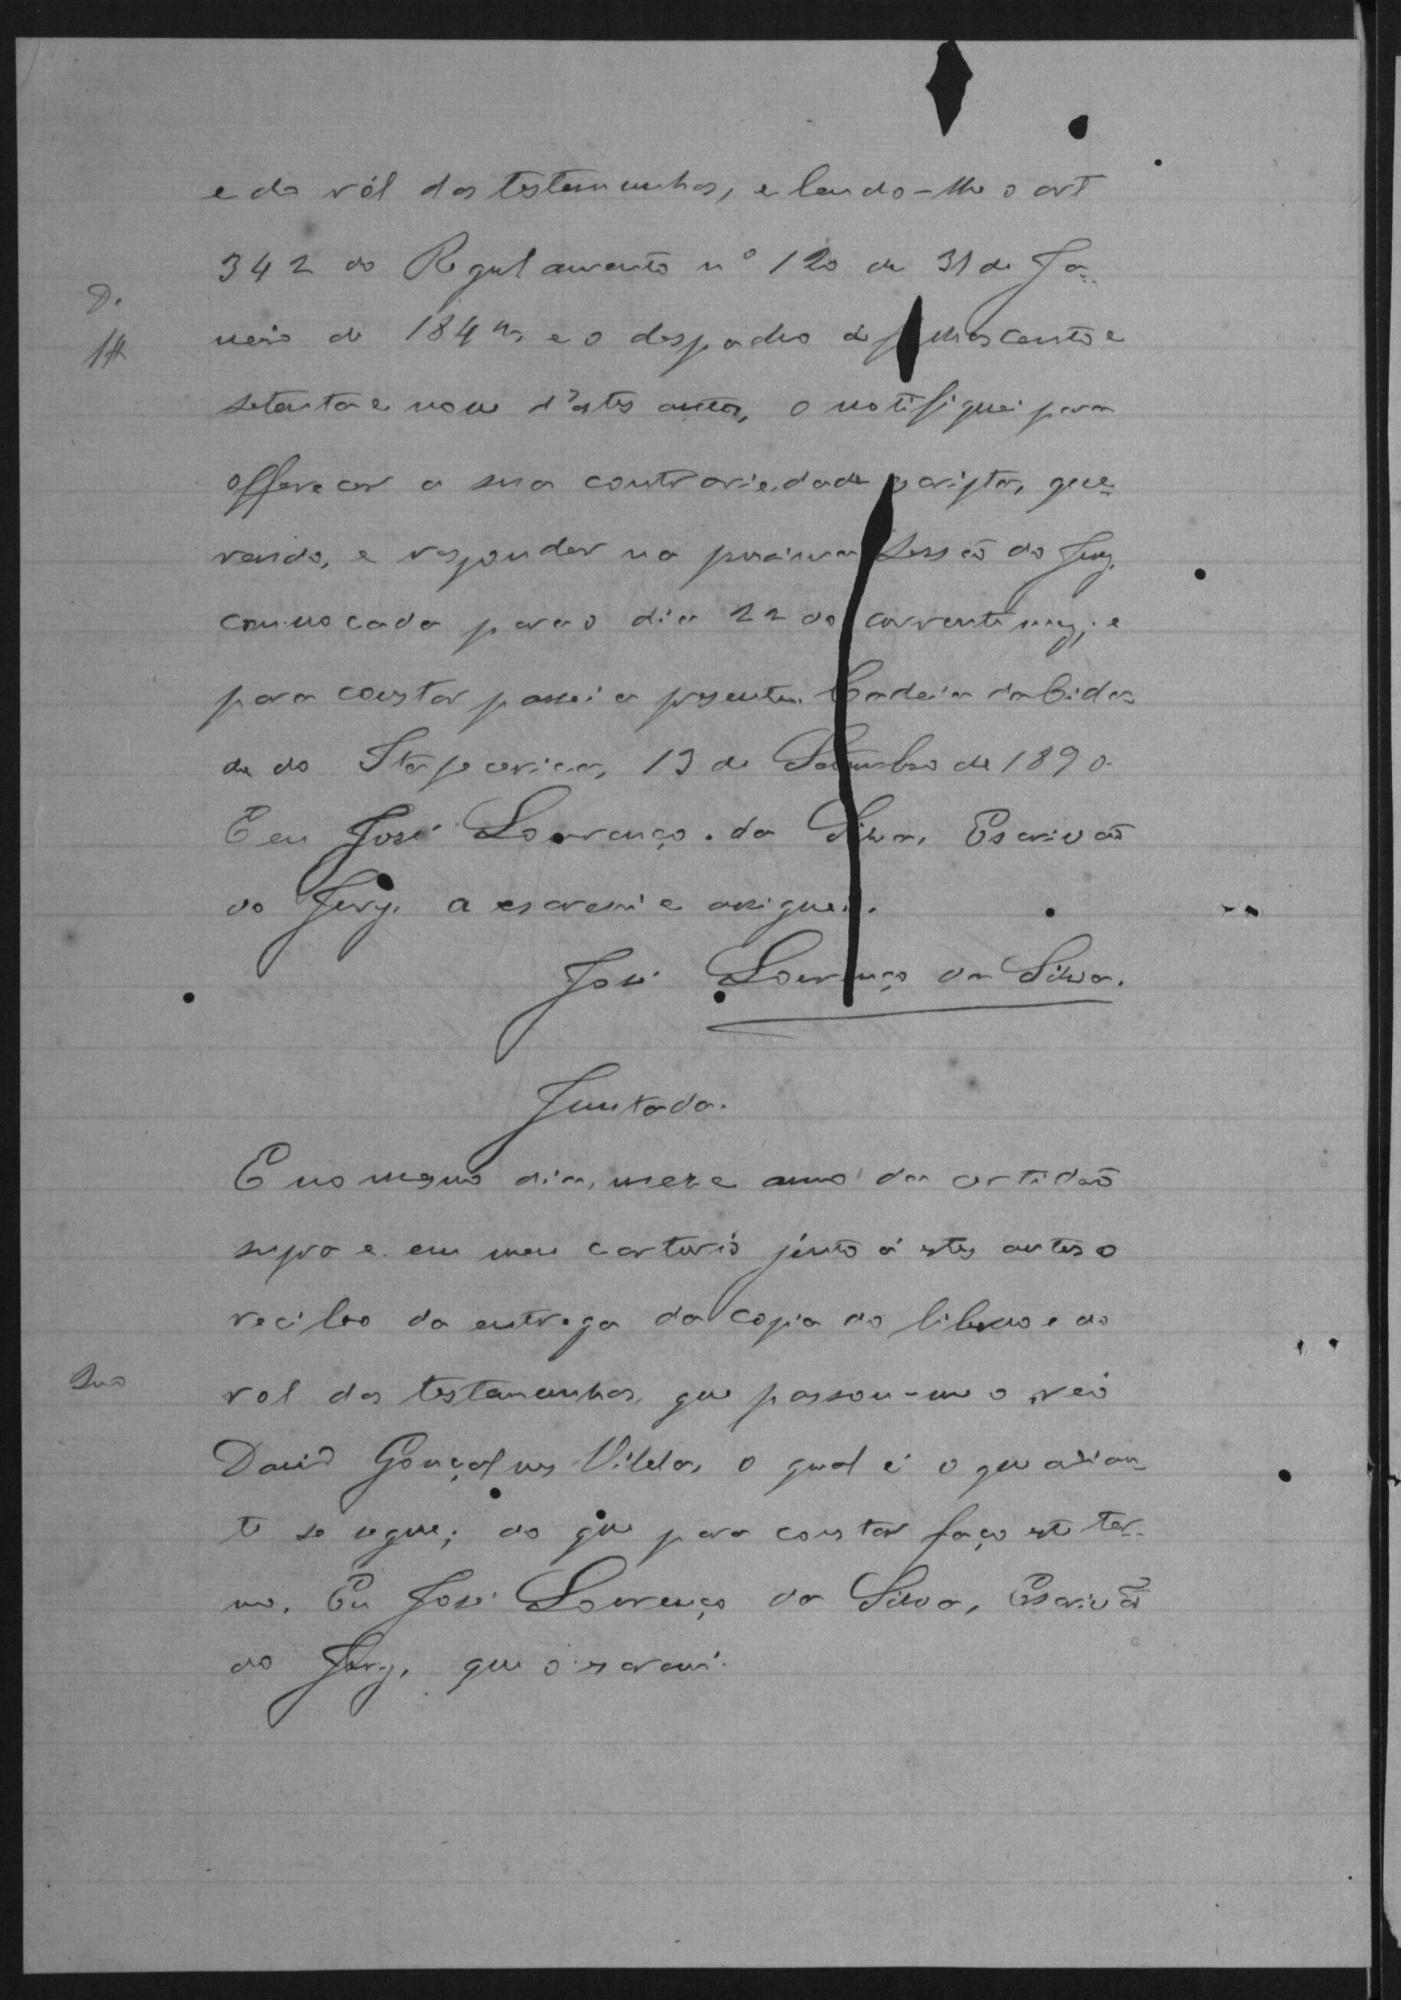 e do ról das testemunhas, e lendo-lhe o art
342 do Regulamento nº 120 de 31 de Ja-
neiro de 1842, e o despacho de folhas cento e
setenta e nove d'estes autos, o notifiquei para
offerecer a sua contrariedade escripta, que-
rendo, e responder na proxima sessão do Jury,
convocada para o dia 22 do corrente mez; e
para constar passei a presente. Cadeia da Cida-
de do Itapecerica, 13 de Setembro de 1890.
E eu José Lourenço da Silva, Escrivão
do Jury, a escrevi e assignei.
José Lourenço da Silva.
Juntada.
E no mesmo dia, mez e anno da certidão
supra e em meu cartorio junto á estes autos o
recibo da entrega da copia do libello e do
rol das testemunhas, que passou-me o reó
David Gonçalves Villela, o qual é o que adian-
te se segue; do que para constar faço este ter-
mo. Eu José Lourenço da Silva, Escrivão
do Jury, que o escrevi.